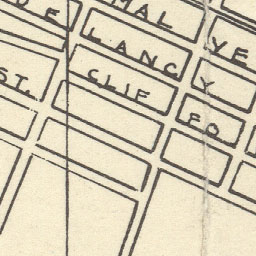 MAL
YE
LANC
Y.
ST.
CLIF
FO